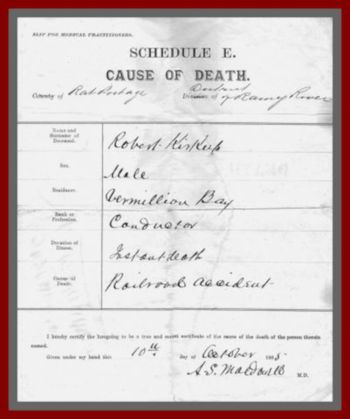 SLIP FOR MEDICAL PRACTITIONERS.
SCHEDULE E.
CAUSE OF DEATH.
County of Rat Portage District Division of Rainy River
Name and Surname of Deceased. Robert Kirkup
Sex. Male
Residence. Vermillion Bay
Rank or Profession. Conductor
Duration of Illness. Instant death
Cause of Death. Railroad accident
I hereby certify the foregoing to be a true and correct certificate of the cause of the death of the person therein
named.
Given under my hand this 10th day of October
M.D.